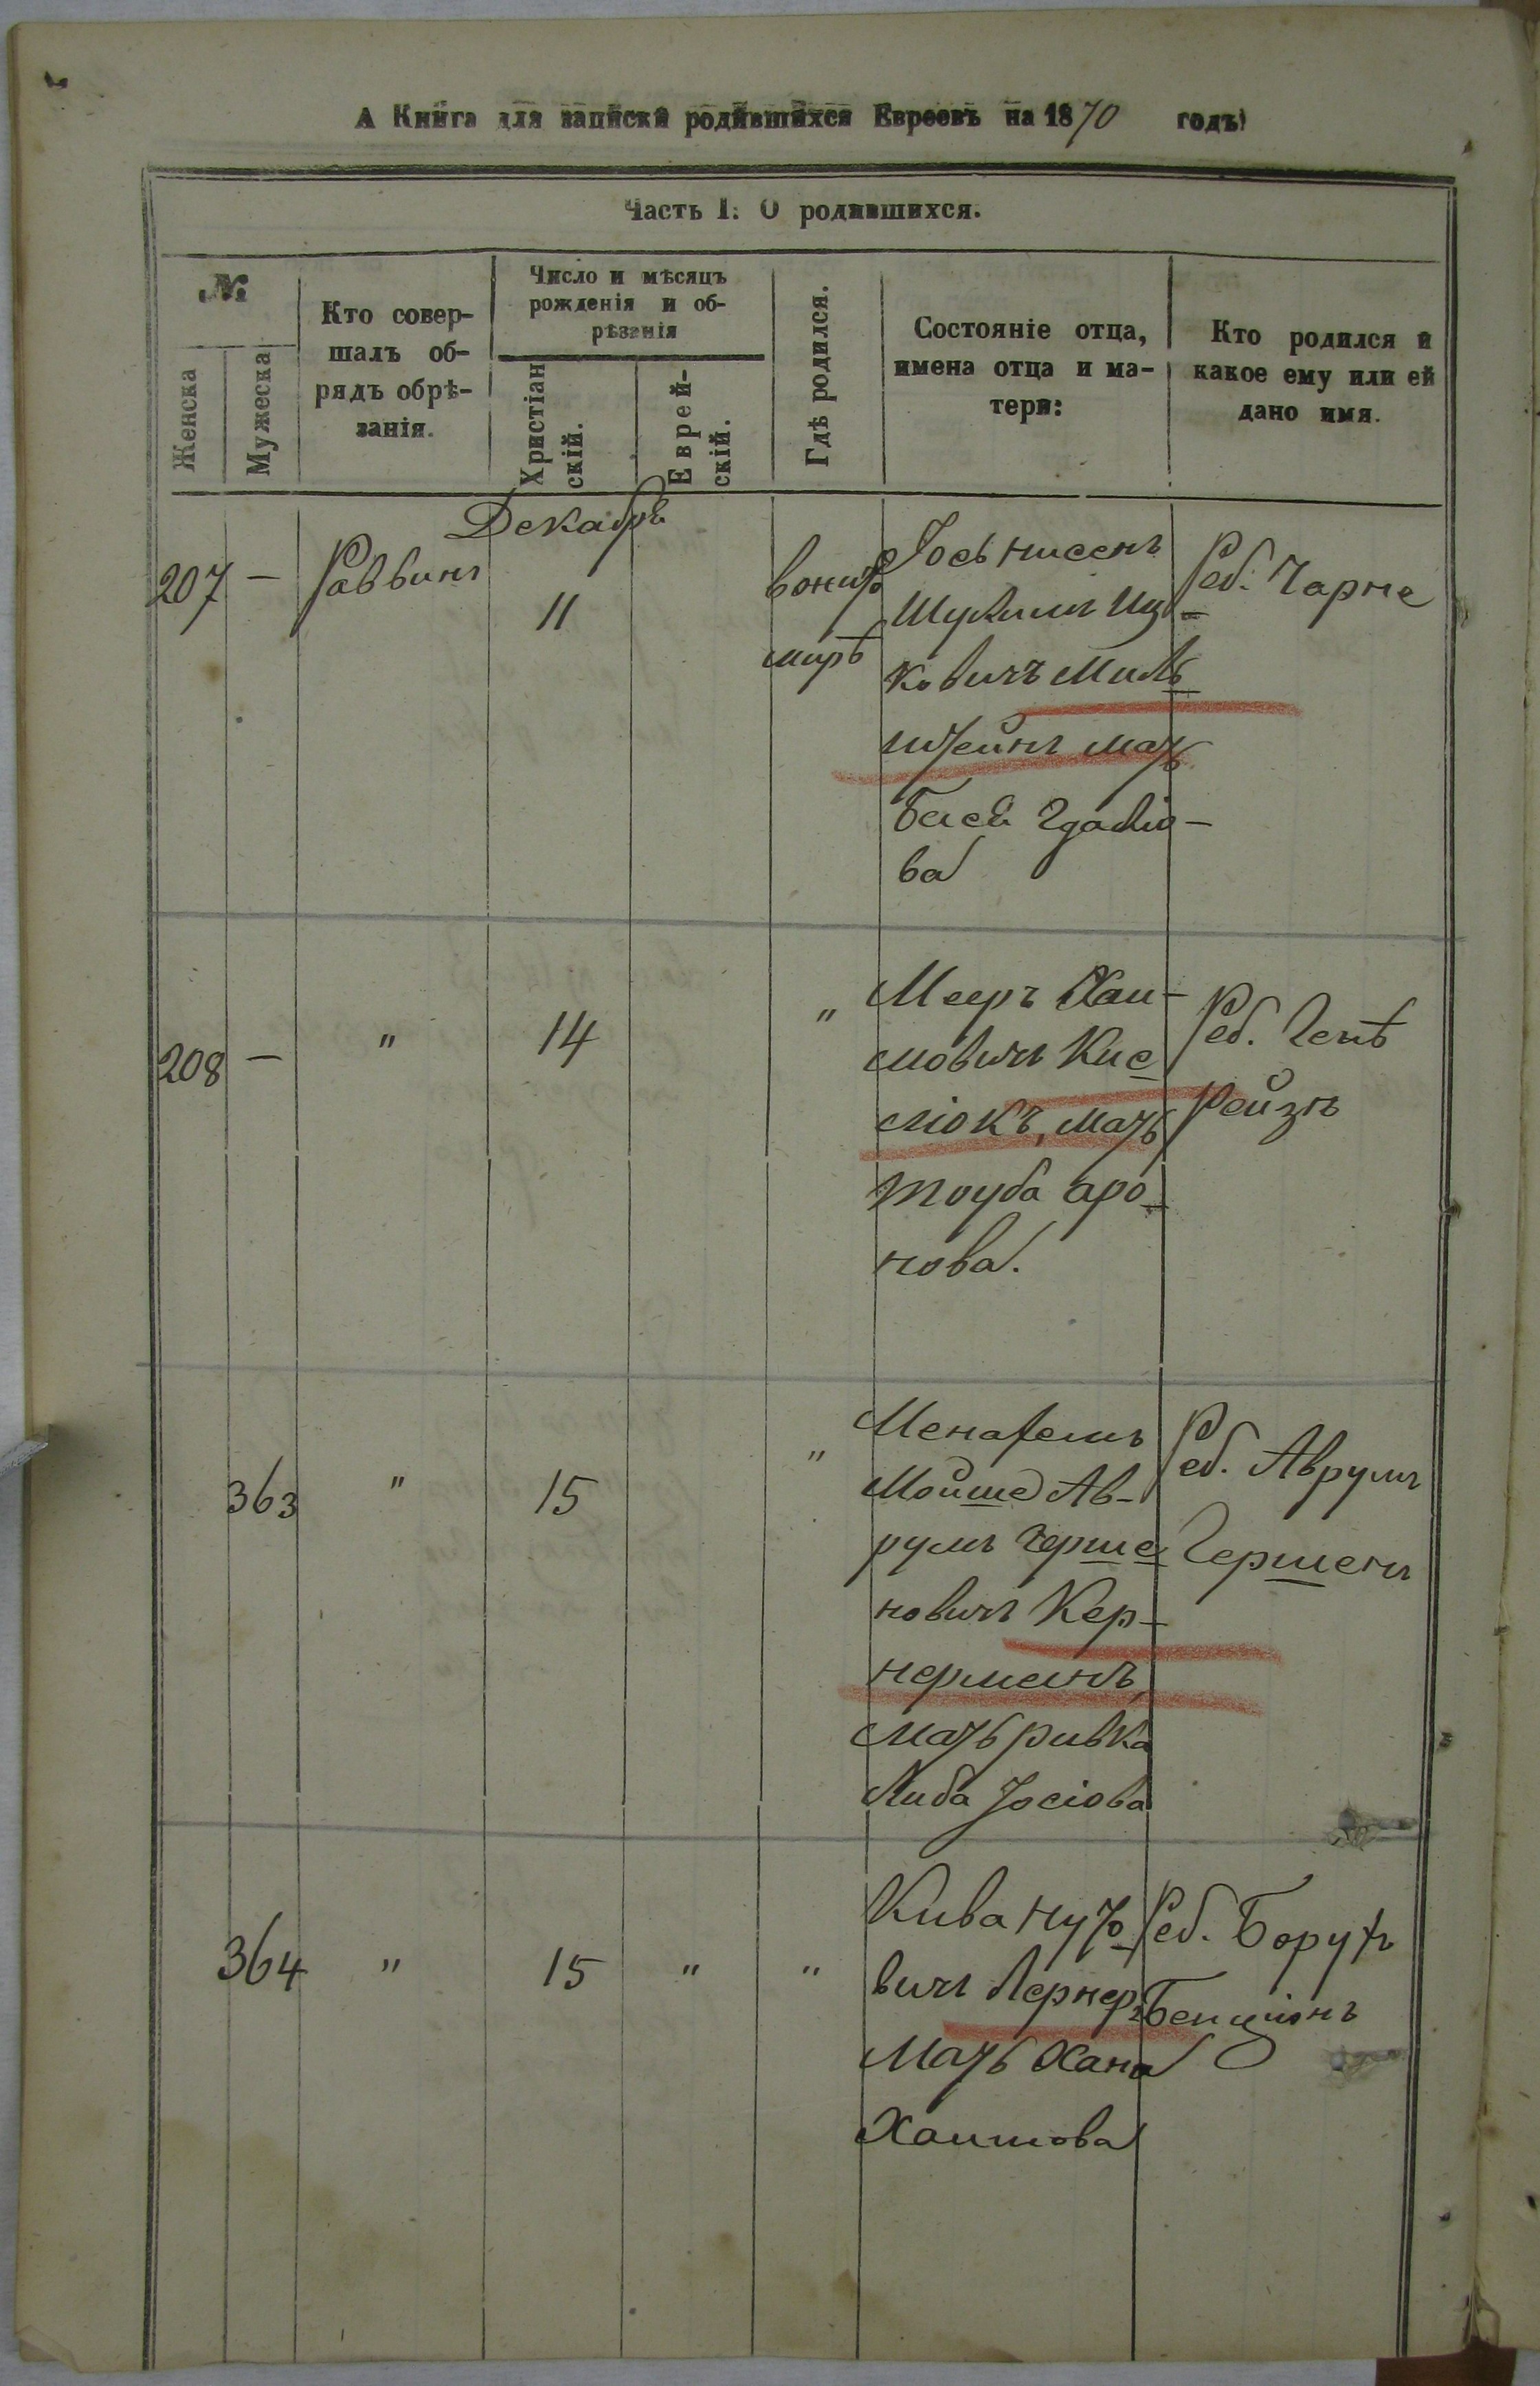 А Книга для записки родившихся Евреевъ на 1870 годъ)
Часть I. О родившихся.
№
Женска
Мужеска
Кто совер-
шалъ об-
рядъ обрѣ-
занія.
Число и мѣсяцъ
рожденія и об-
рѣзанія
Христіан
скій.
Еврей-
скій.
Гдѣ родился.
Состояніе отца,
имена отца и ма-
тери:
Кто родился и
какое ему или ей
дано имя.
Декабрь
207 — Раввинъ 11
Іось Нисенъ
Шулимъ Иц-
ковичъ Миль
штейнъ мать
Бася
ва
Реб. Чарне
208 — " 14 "
Мееръ Хаи-
мовичъ Кис
люкъ, мать
Тауба Аро-
нова.
Реб. Гене
Рейзя
363 " 15 "
Менахемъ
Мойше Ав-
румъ Герше
новичъ Кер-
нерманъ,
мать Ривка
Либа Іосіова
Реб. Аврумъ
Гершенъ
364 " 15 " "
Кива Нуто
вичъ Лернеръ
Мать Хана
Хаимова
Реб. Борухъ
Бенціонъ